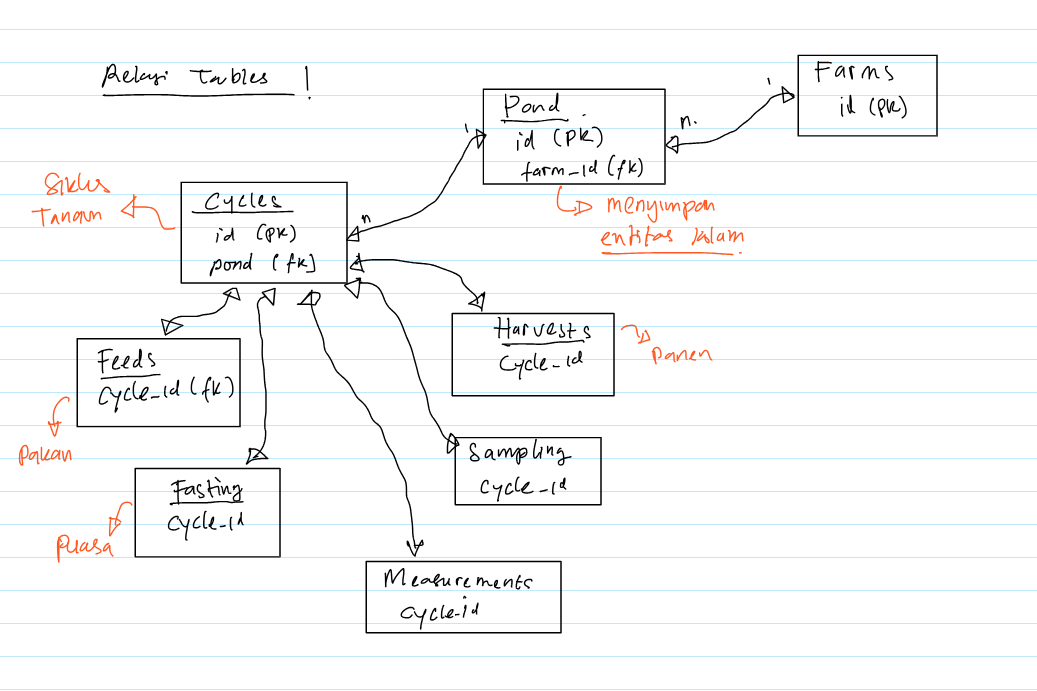 Relasi Tables !
Farms
id (pk)
1
n.
Pond
id (pk)
farm_id (fk)
1
n
menyimpan
entitas kolam
Cycles
id (pk)
pond (fk]
Siklus
Harvests
cycle_id
Panen
Feeds
cycle_id (fk)
Pakan
Sampling
cycle_id
Fasting
cycle_id
puasa
Measurements
cycle_id